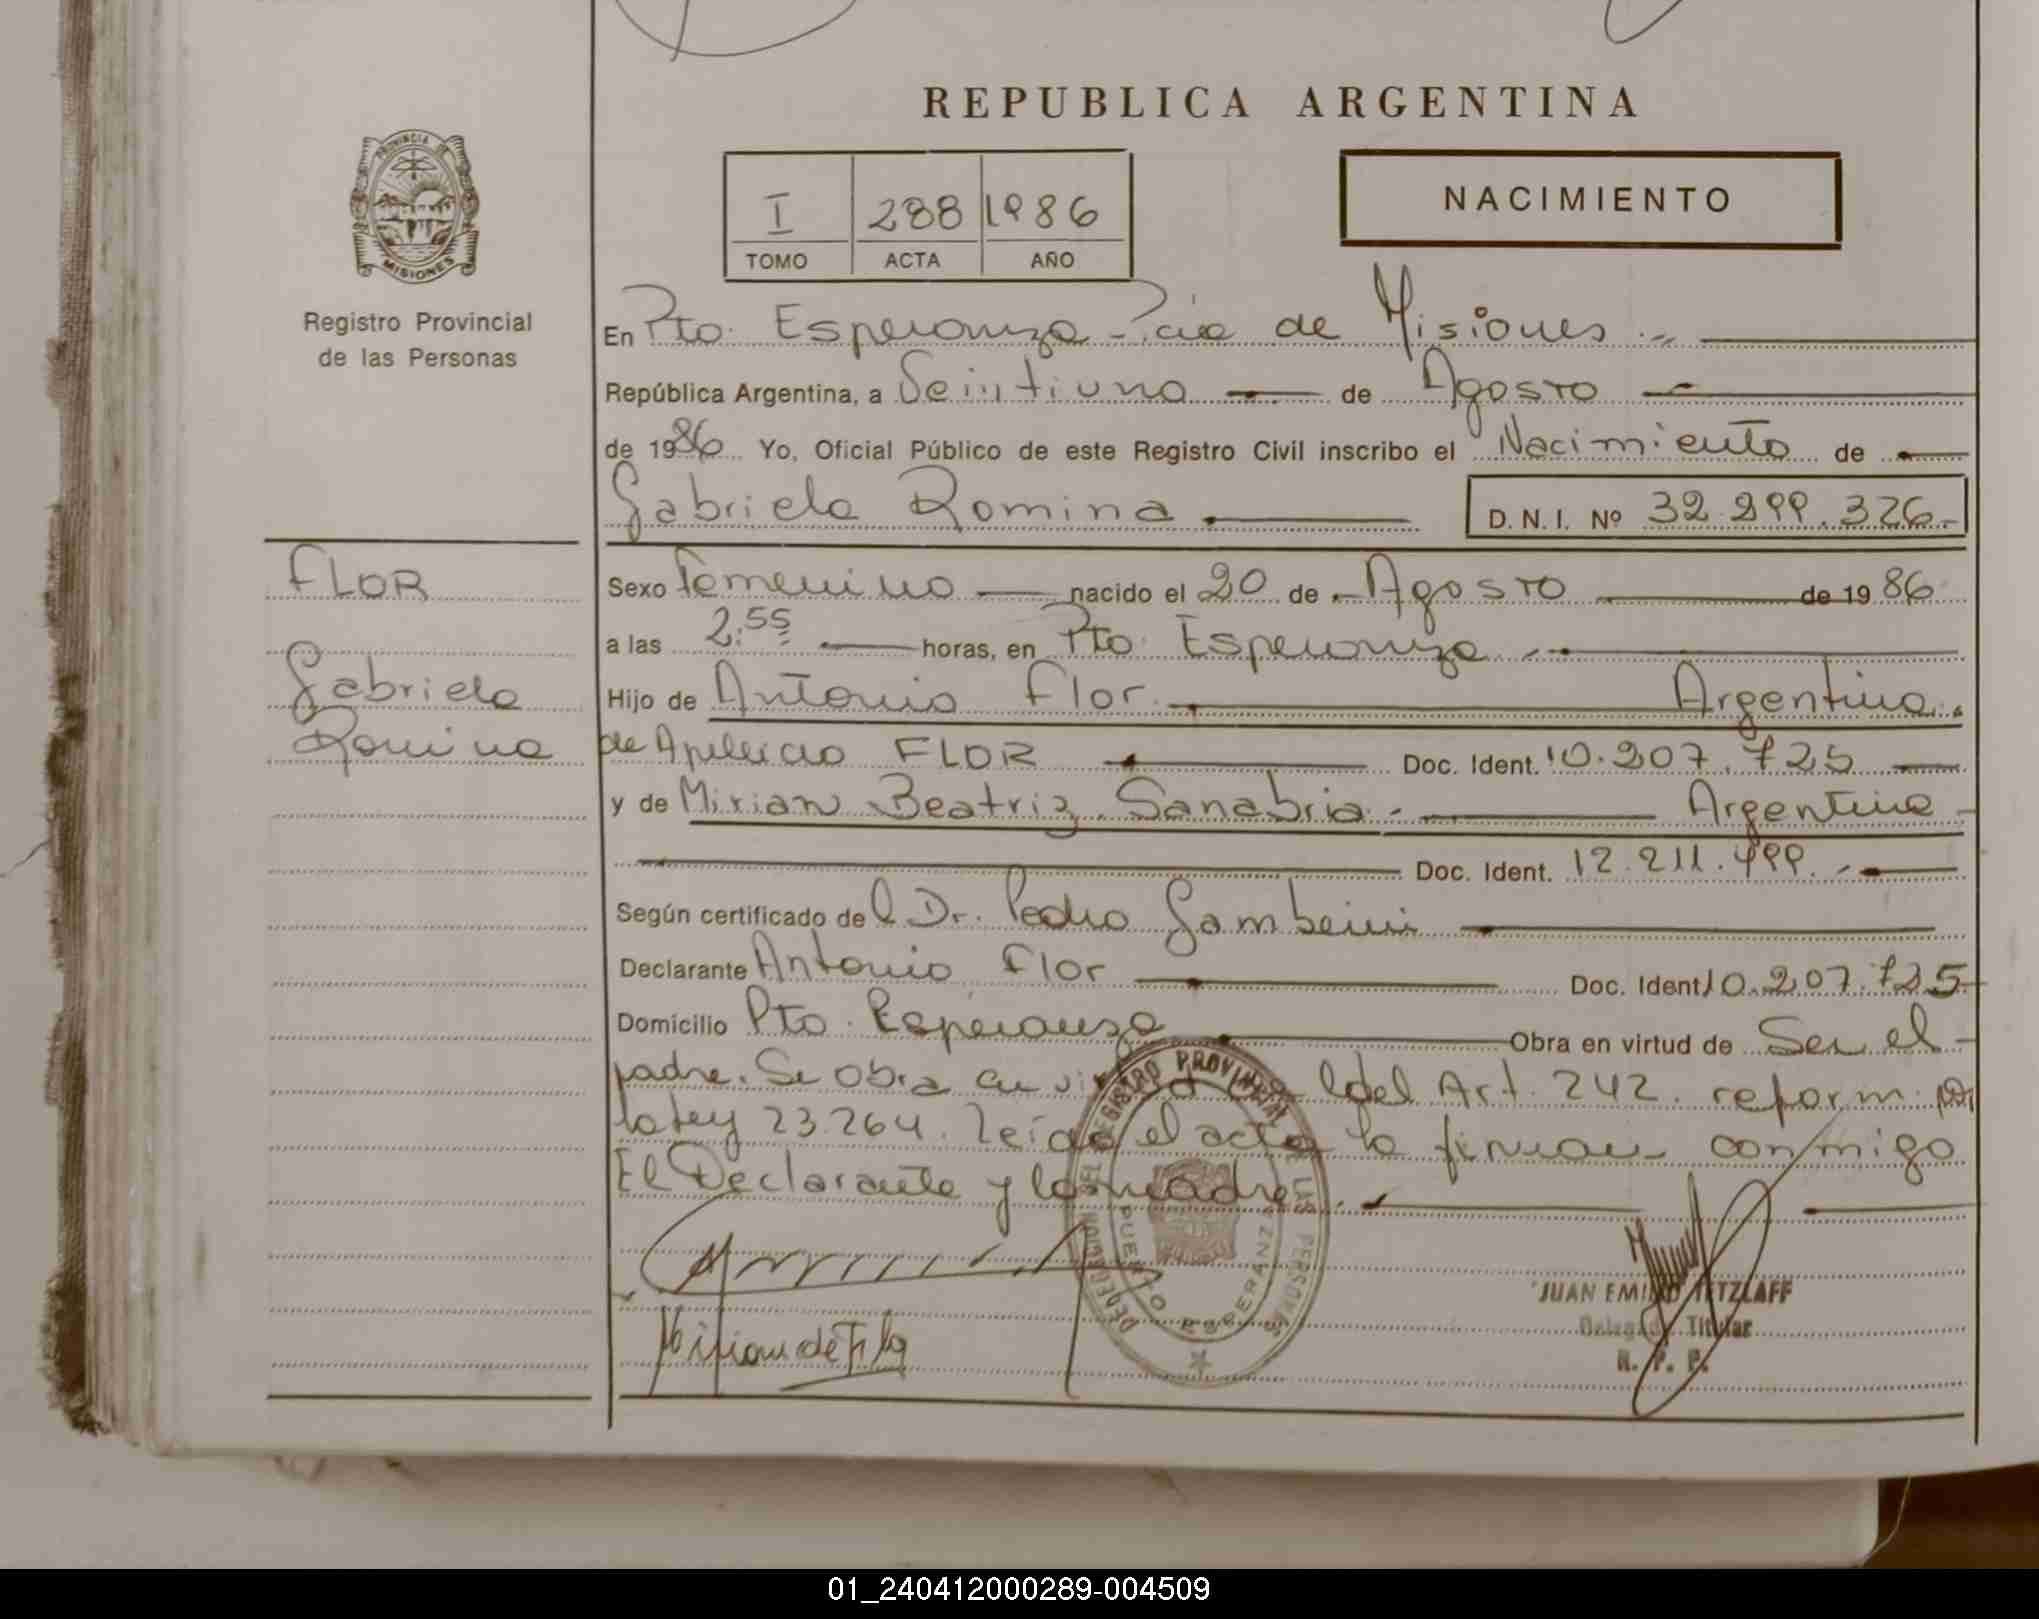 REPUBLICA ARGENTINA
PROVINCIA DE MISIONES
Registro Provincial
de las Personas
I 288 1986
TOMO ACTA AÑO
NACIMIENTO
En Pto. Esperanza - Pcia de Misiones.-
República Argentina, a Veintiuno de Agosto
de 1986 Yo, Oficial Público de este Registro Civil inscribo el Nacimiento de
Gabriela Romina D.N.I. Nº 32.299.326.-
FLOR
Gabriela
Romina
Sexo Femenino nacido el 20 de Agosto de 1986
a las 2:55 horas, en Pto. Esperanza.-
Hijo de Antonio Flor. Argentina.
de Aparicio FLOR Doc. Ident. 10.207.725
y de Mirian Beatriz Sanabria.- Argentina-
Doc. Ident. 12.211.499.-
Según certificado del Dr. Pedro
Declarante Antonio Flor Doc. Ident. 10.207.725-
Domicilio Pto. Esperanza Obra en virtud de Ser el-
padre. Se obra en del Art. 242. reform. por
la Ley 23.264. Leído el acta la firman conmigo
El Declarante y la madre.-
DELEGACION DEL REGISTRO PROVINCIAL DE LAS PERSONAS
PUERTO ESPERANZA
JUAN EMILIO TETZLAFF
Delegado Titular
R. P. P.
01_240412000289-004509